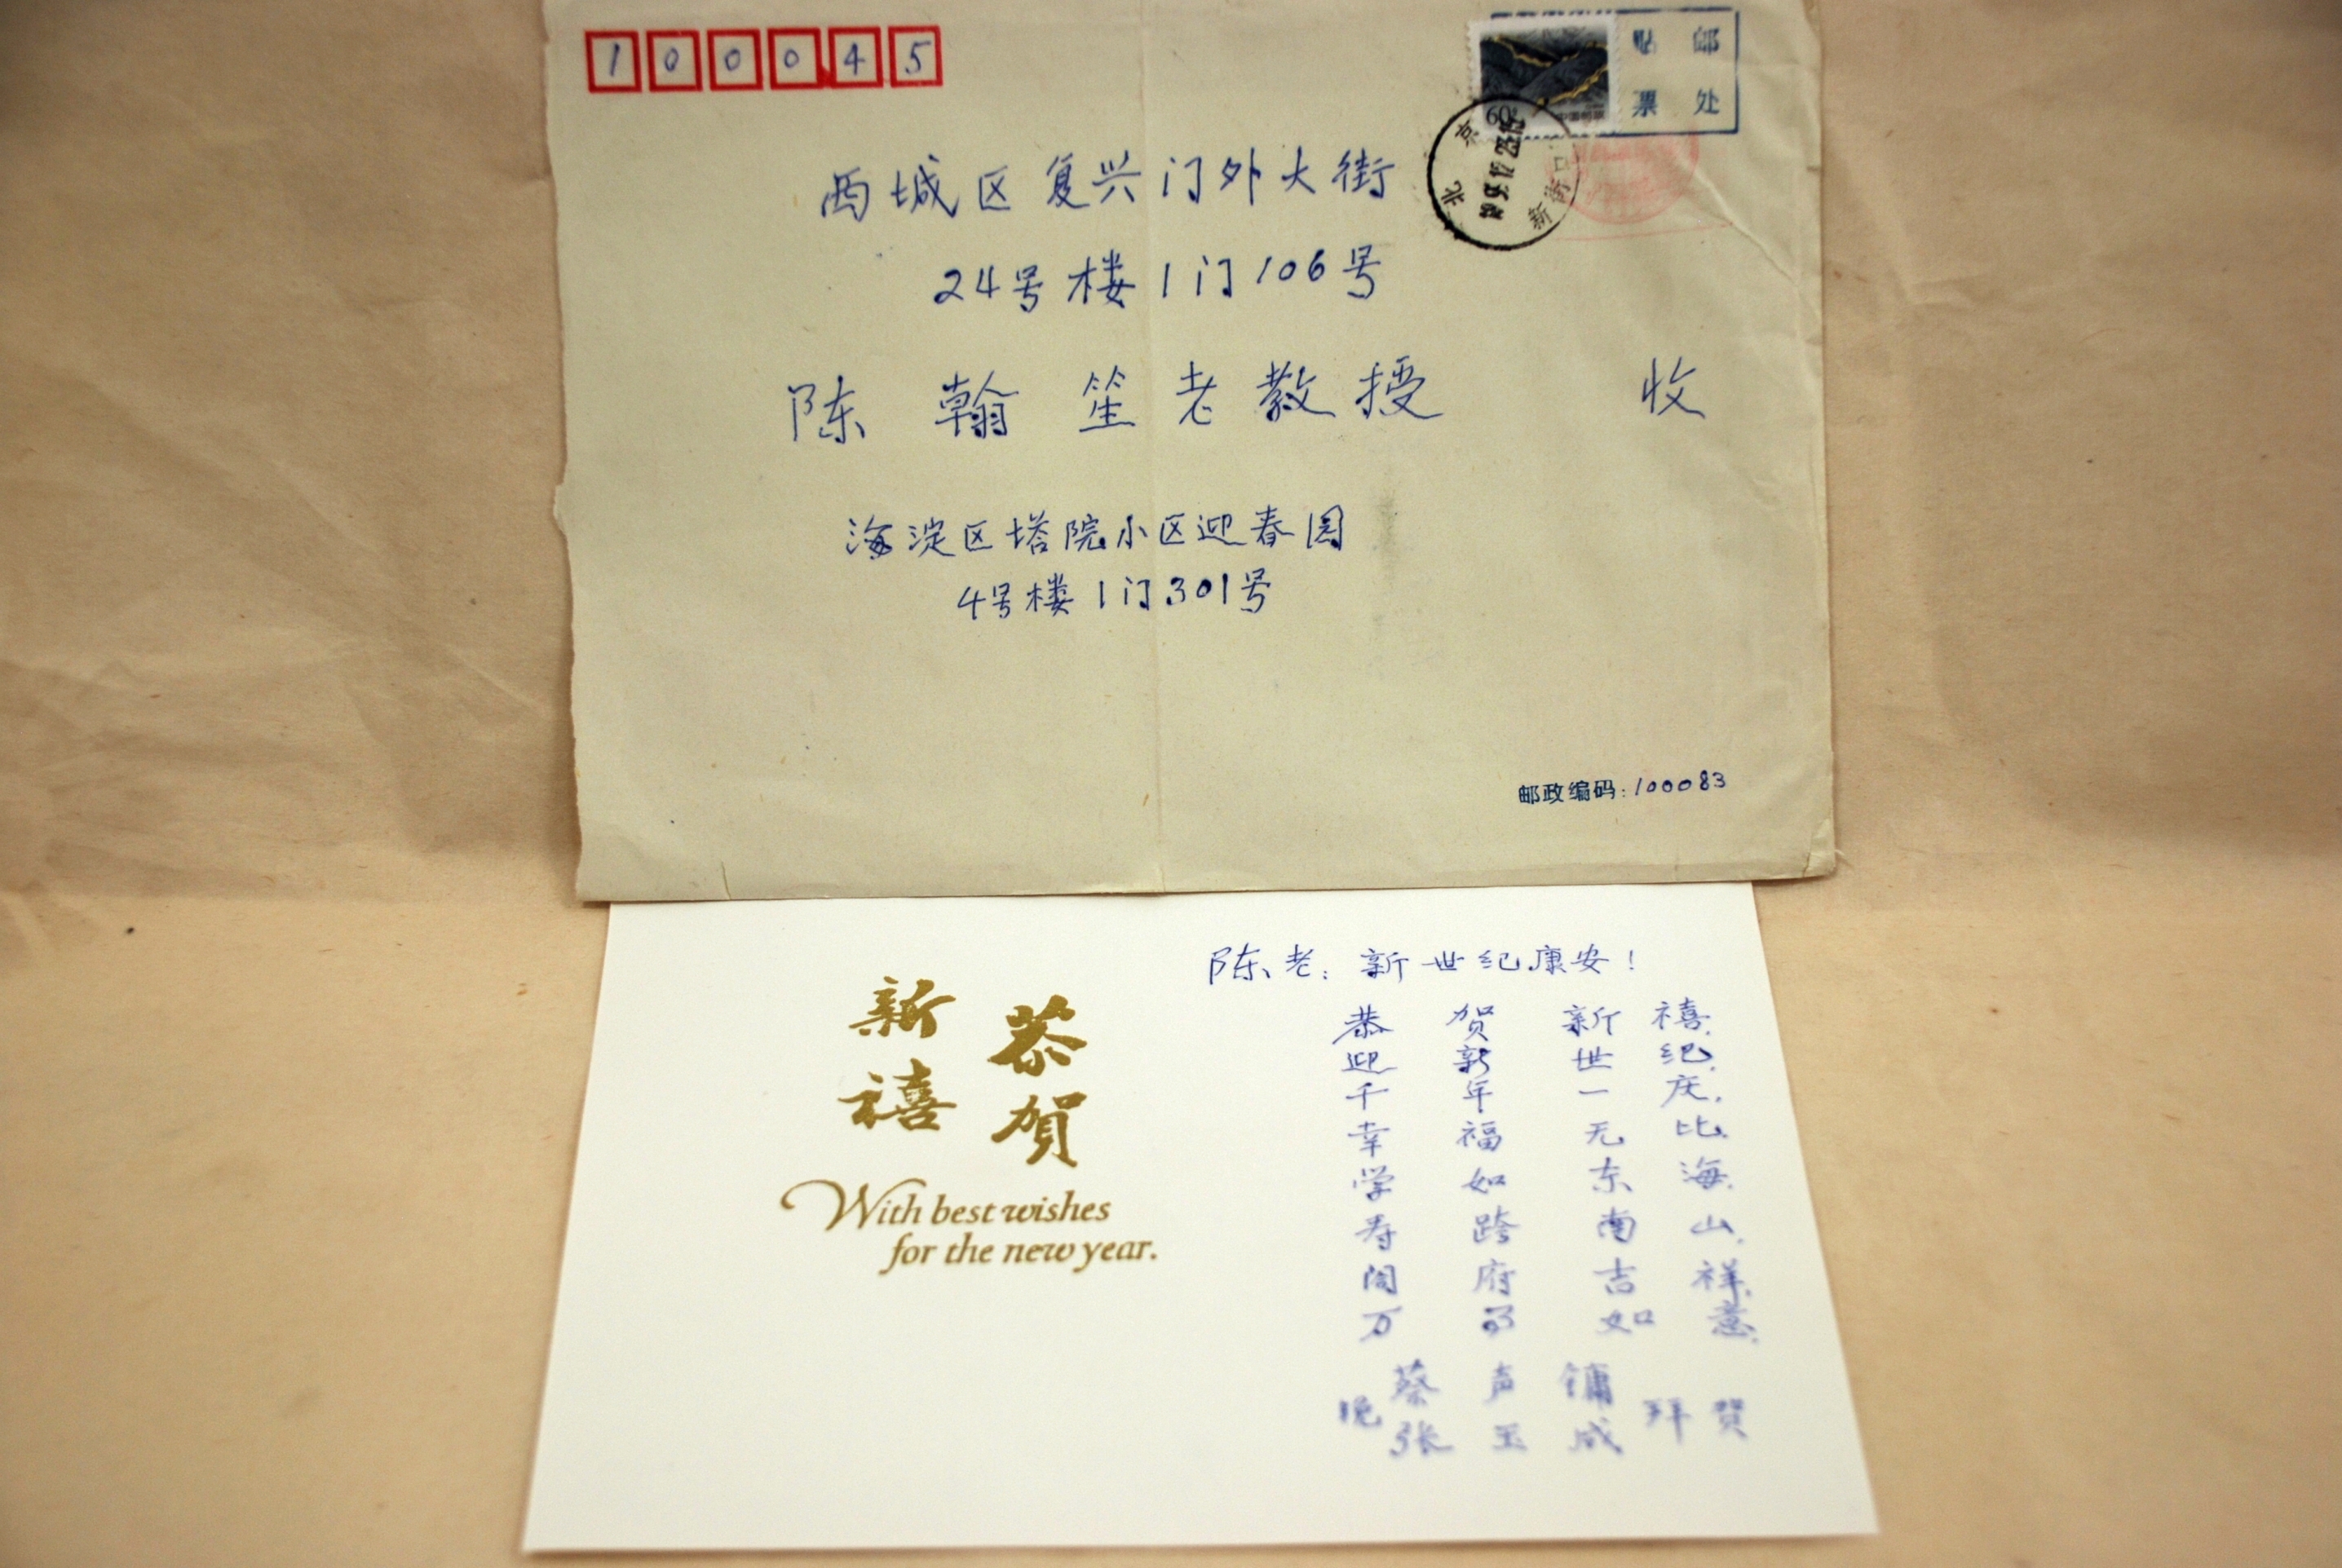 100045
邮票
贴处
60
中国邮政
北京
新街口
西城区复兴门外大街
24号楼1门106号
陈翰笙老教授 收
海淀区塔院小区迎春园
4号楼1门301号
邮政编码:100083
恭贺
新禧
With best wishes
for the new year.
陈老:新世纪康安!
恭贺新禧.
迎新世纪.
千年一庆.
幸福无比.
学如东海.
寿跨南山.
阖府吉祥.
万事如意.
晚 蔡声镛 拜贺
张玉成